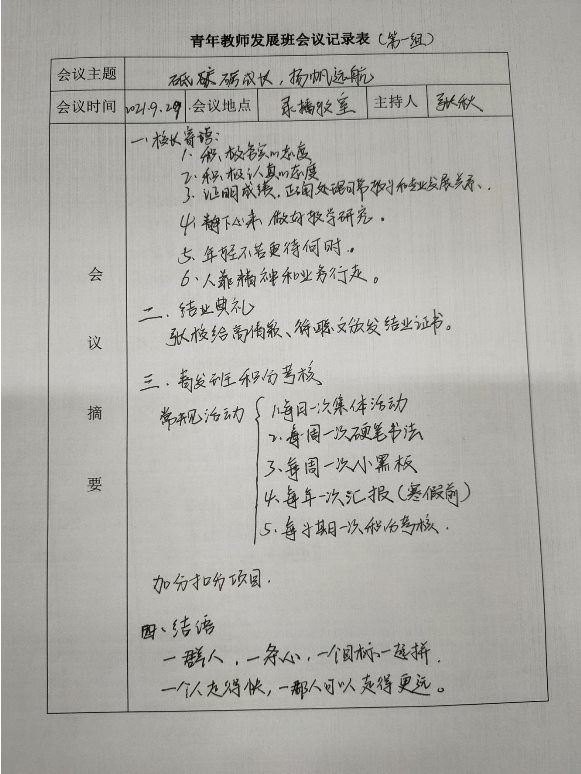 青年教师发展班会议记录表（第一组）
会议主题 砥砺成长，扬帆远航
会议时间 2021.9.29 会议地点 录播教室 主持人 张秋
会议摘要
一、校长寄语：
1. 积极务实的态度
2. 积极认真的态度
3. 证明成绩，正确处理日常教学和专业发展关系、
4. 静下心来 做好教学研究。
5. 年轻不苦更待何时。
6. 人靠精神和业务行走。
二、结业典礼
张校给高倩歆、徐聪文颁发结业证书。
三、青发班积分考核
常规活动
1. 每日一次集体活动
2. 每周一次硬笔书法
3. 每周一次小黑板
4. 每年一次汇报（寒假前）
5. 每学期一次积分考核．
加分扣分项目．
四、结语
一群人，一条心，一个目标一起拼．
一个人走得快，一群人可以走得更远。